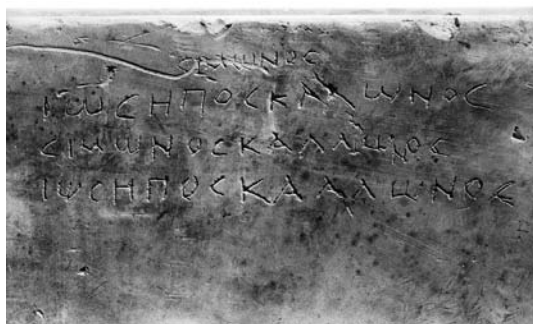 CΙΜΩΝΟC
ΙΩCΗΠΟCΚΑΛΛΩΝΟC
CΙΜΩΝΟCΚΑΛΛΩΝΟC
ΙΩCΗΠΟCΚΑΛΛΩΝΟC